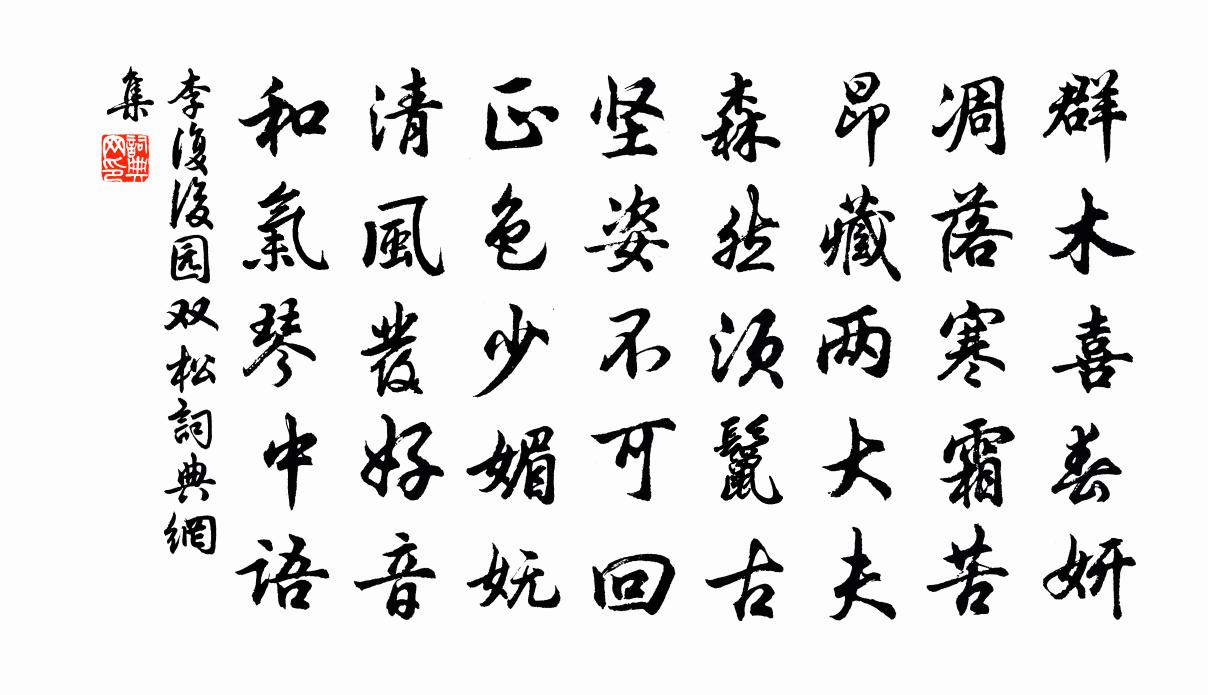 群木喜春妍
凋落寒霜苦
昂藏两大夫
森然须鬣古
坚姿不可回
正色少媚妩
清風發好音
和氣琴中語
李復後园双松詞典網
集
詞典
网印